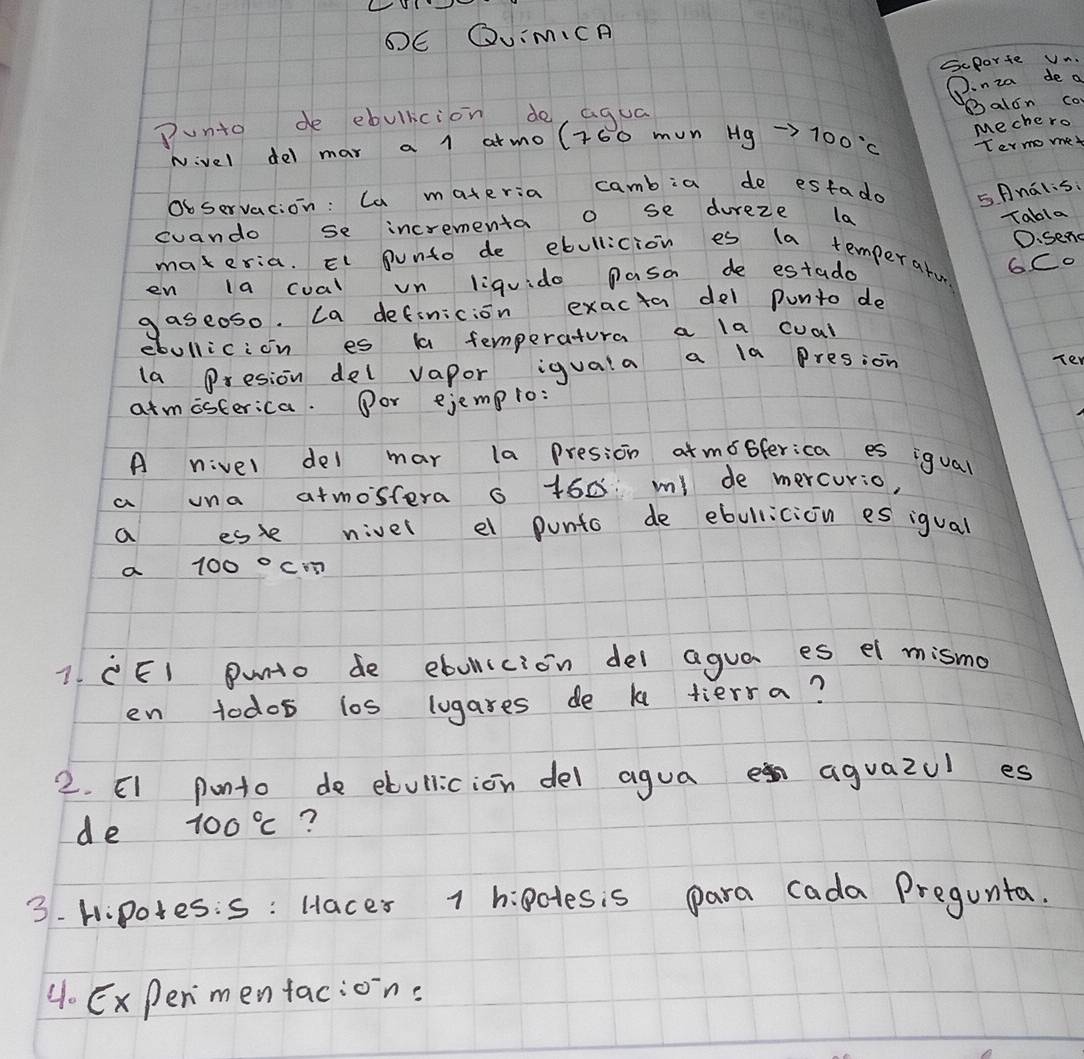 DE QUiMiCA
Punto de ebullicion de agua
Nivel del mar a 1 atmo (760 mun Hg -> 100°C
Observación: La materia cambia de estado
cuando se incrementa o se dureze la
materia. El punto de ebullición es la temperatur
en la cual un liquido pasa de estado
gaseoso. La definición exacta del punto de
ebullición es la temperatura a la cual
la presión del vapor iguala a la presion
atmósferica. Por ejemplo:
A nivel del mar la presión atmósferica es igual
a una atmosfera o 760 ml de mercurio,
a este nivel el punto de ebullición es igual
a 100 °cm
1. ¿El punto de ebullición del agua es el mismo
en todos los lugares de la tierra?
2. El punto de ebullición del agua en aguazul es
de 100°C?
3. Hipotesis: Hacer 1 hipotesis para cada Pregunta.
4. Experimentación:
Soporte un.
Pinza de a
Balón co
Mechero
Termomet
5. Análisi
Tabla
Diseño
6. Co
Ter